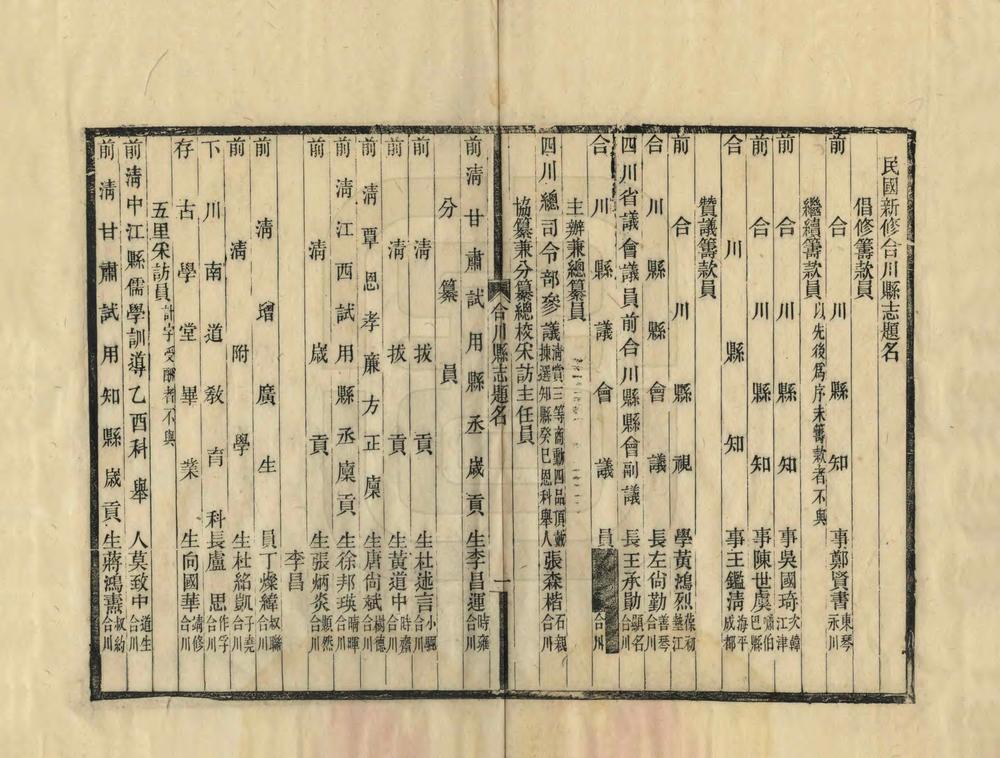 民國新修合川縣志題名
倡修籌款員
前合川縣知事鄭賢書東琴永川
繼續籌款員以先後為序未籌款者不與
前合川縣知事吳國琦次韓江津
前合川縣知事陳世虞嘯伯巴縣
合川縣知事王鑑淸海平成都
贊議籌款員
前合川縣視學黃鴻烈葆初綦江
合川縣縣會議長左尙勤善琴合川
四川省議會議員前合川縣縣會副議長王承勛顯名合川
合川縣議會議員 合川
主辦兼總纂員
四川總司令部參議淸賞三等商勳四品頂戴揀選知縣癸巳恩科舉人張森楷石親合川
協纂兼分纂總校采訪主任員
合川縣志題名
一
前淸甘肅試用縣丞歲貢生李昌運時雍合川
分纂員
前淸拔貢生杜述言小驪合川
前淸拔貢生黃道中時齋合川
前淸覃恩孝廉方正廩生唐尙斌樹德合川
前淸江西試用縣丞廩貢生徐邦瑛晴暉合川
前淸歲貢生張炳炎顯然合川
李昌
前淸增廣生員丁燦緯叔驎合川
前淸附學生杜紹凱子堯合川
下川南道敎育科長盧思作孚合川
存古學堂畢業生向國華靖修合川
五里采訪員計字受酬者不與
前淸中江縣儒學訓導乙酉科舉人莫致中道生合川
前淸甘肅試用知縣歲貢生蔣鴻熹叔約合川